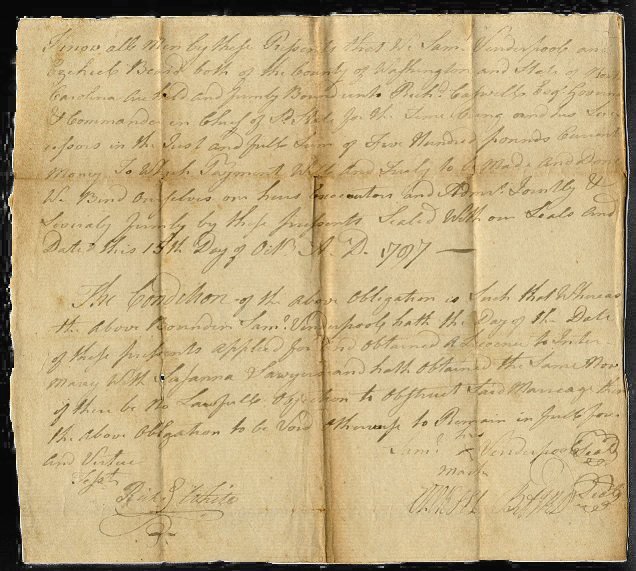 Know all Men by these Presents that We Saml Vanderpools and
Ezekiel Beard both of the County of Washington and State of North
Carolina are held and firmly Bound unto Richd Caswell Esqr Govern
& Commander in Chief of the State for the time being and his Suc
cessors in the Just and full Sum of five Hundred pounds Current
Money To Which Payment Well and Truly to be Made and Done
We Bind Ourselves our heirs Executors and Admrs Jointly &
Severaly firmly by these presents Sealed With our Seals and
Dated this 15th Day of Octr A. D. 1787
The Condition of the above Obligation is Such that Whereas
the above Bounden Saml Vanderpools hath the Day of the Date
of these presents applied for and obtained a Licence to Inter
Marry With Susanna Sawyers and hath obtained the Same Now
if there be No Lawfull Objection to Obstruct Said Marreage then
the above Obligation to be Void otherwise to Remain in full for
and Virtue
Saml his x Vanderpool Seal
mark
Test
Richd White
Beard Seal